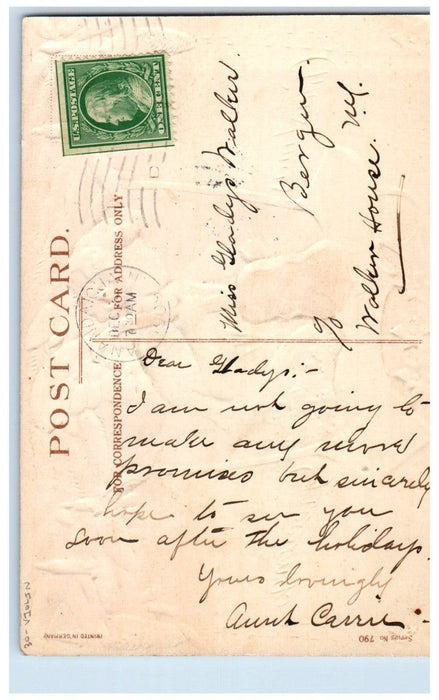 POST CARD.
FOR CORRESPONDENCE
FOR ADDRESS ONLY
U.S. POSTAGE
DEC
AM
Miss Gladys Walker.
Bergen
N.Y.
c/o
Walker House.
Dear Gladys:-
I am not going to
make any more
promises but sincerely
hope to see you
soon after the holidays.
Yours lovingly
Aunt Carrie -
Series No 790
PRINTED IN GERMANY